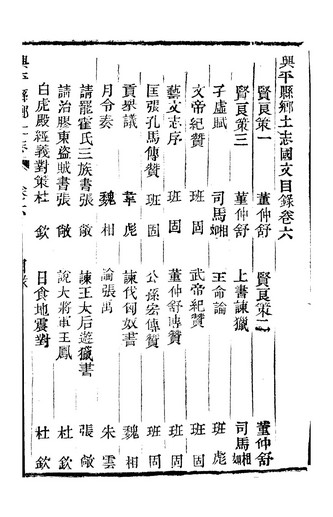 興平縣鄉土志國文目錄卷六
賢良策一 董仲舒 賢良策二 董仲舒
賢良策三 董仲舒 上書諫獵 司馬相如
子虛賦 司馬相如 王命論 班彪
文帝紀贊 班固 武帝紀贊 班固
藝文志序 班固 董仲舒傳贊 班固
匡張孔馬傳贊 班固 公孫宏傳贊 班固
貢舉議 韋彪 諫伐匈奴書 魏相
月令奏 魏相 論張禹 朱雲
請罷霍氏三族書 張敞 諫王太后遊獵書 張敞
請治膠東盜賊書 張敞 說大將軍王鳳 杜欽
白虎殿經義對策 杜欽 日食地震對 杜欽
興平縣鄉土志 卷六 目錄